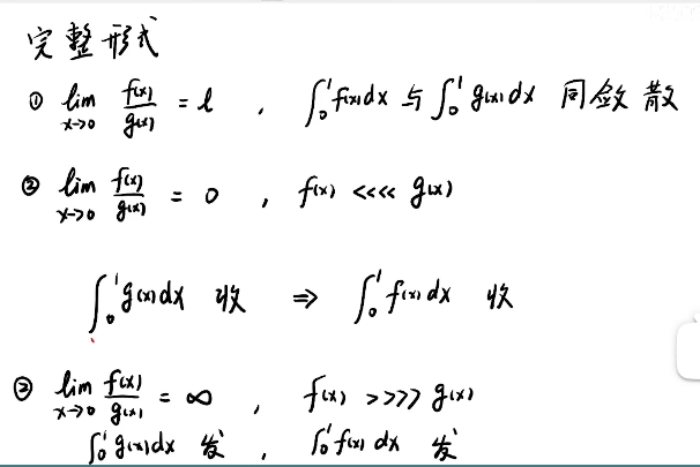 完整形式
① lim x→0 f(x)/g(x) = l , ∫₀¹ f(x)dx 与 ∫₀¹ g(x)dx 同敛散
② lim x→0 f(x)/g(x) = 0 , f(x) <<<< g(x)
∫₀¹ g(x)dx 收 ⇒ ∫₀¹ f(x)dx 收
③ lim x→0 f(x)/g(x) = ∞ , f(x) >>>> g(x)
∫₀¹ g(x)dx 发 , ∫₀¹ f(x)dx 发